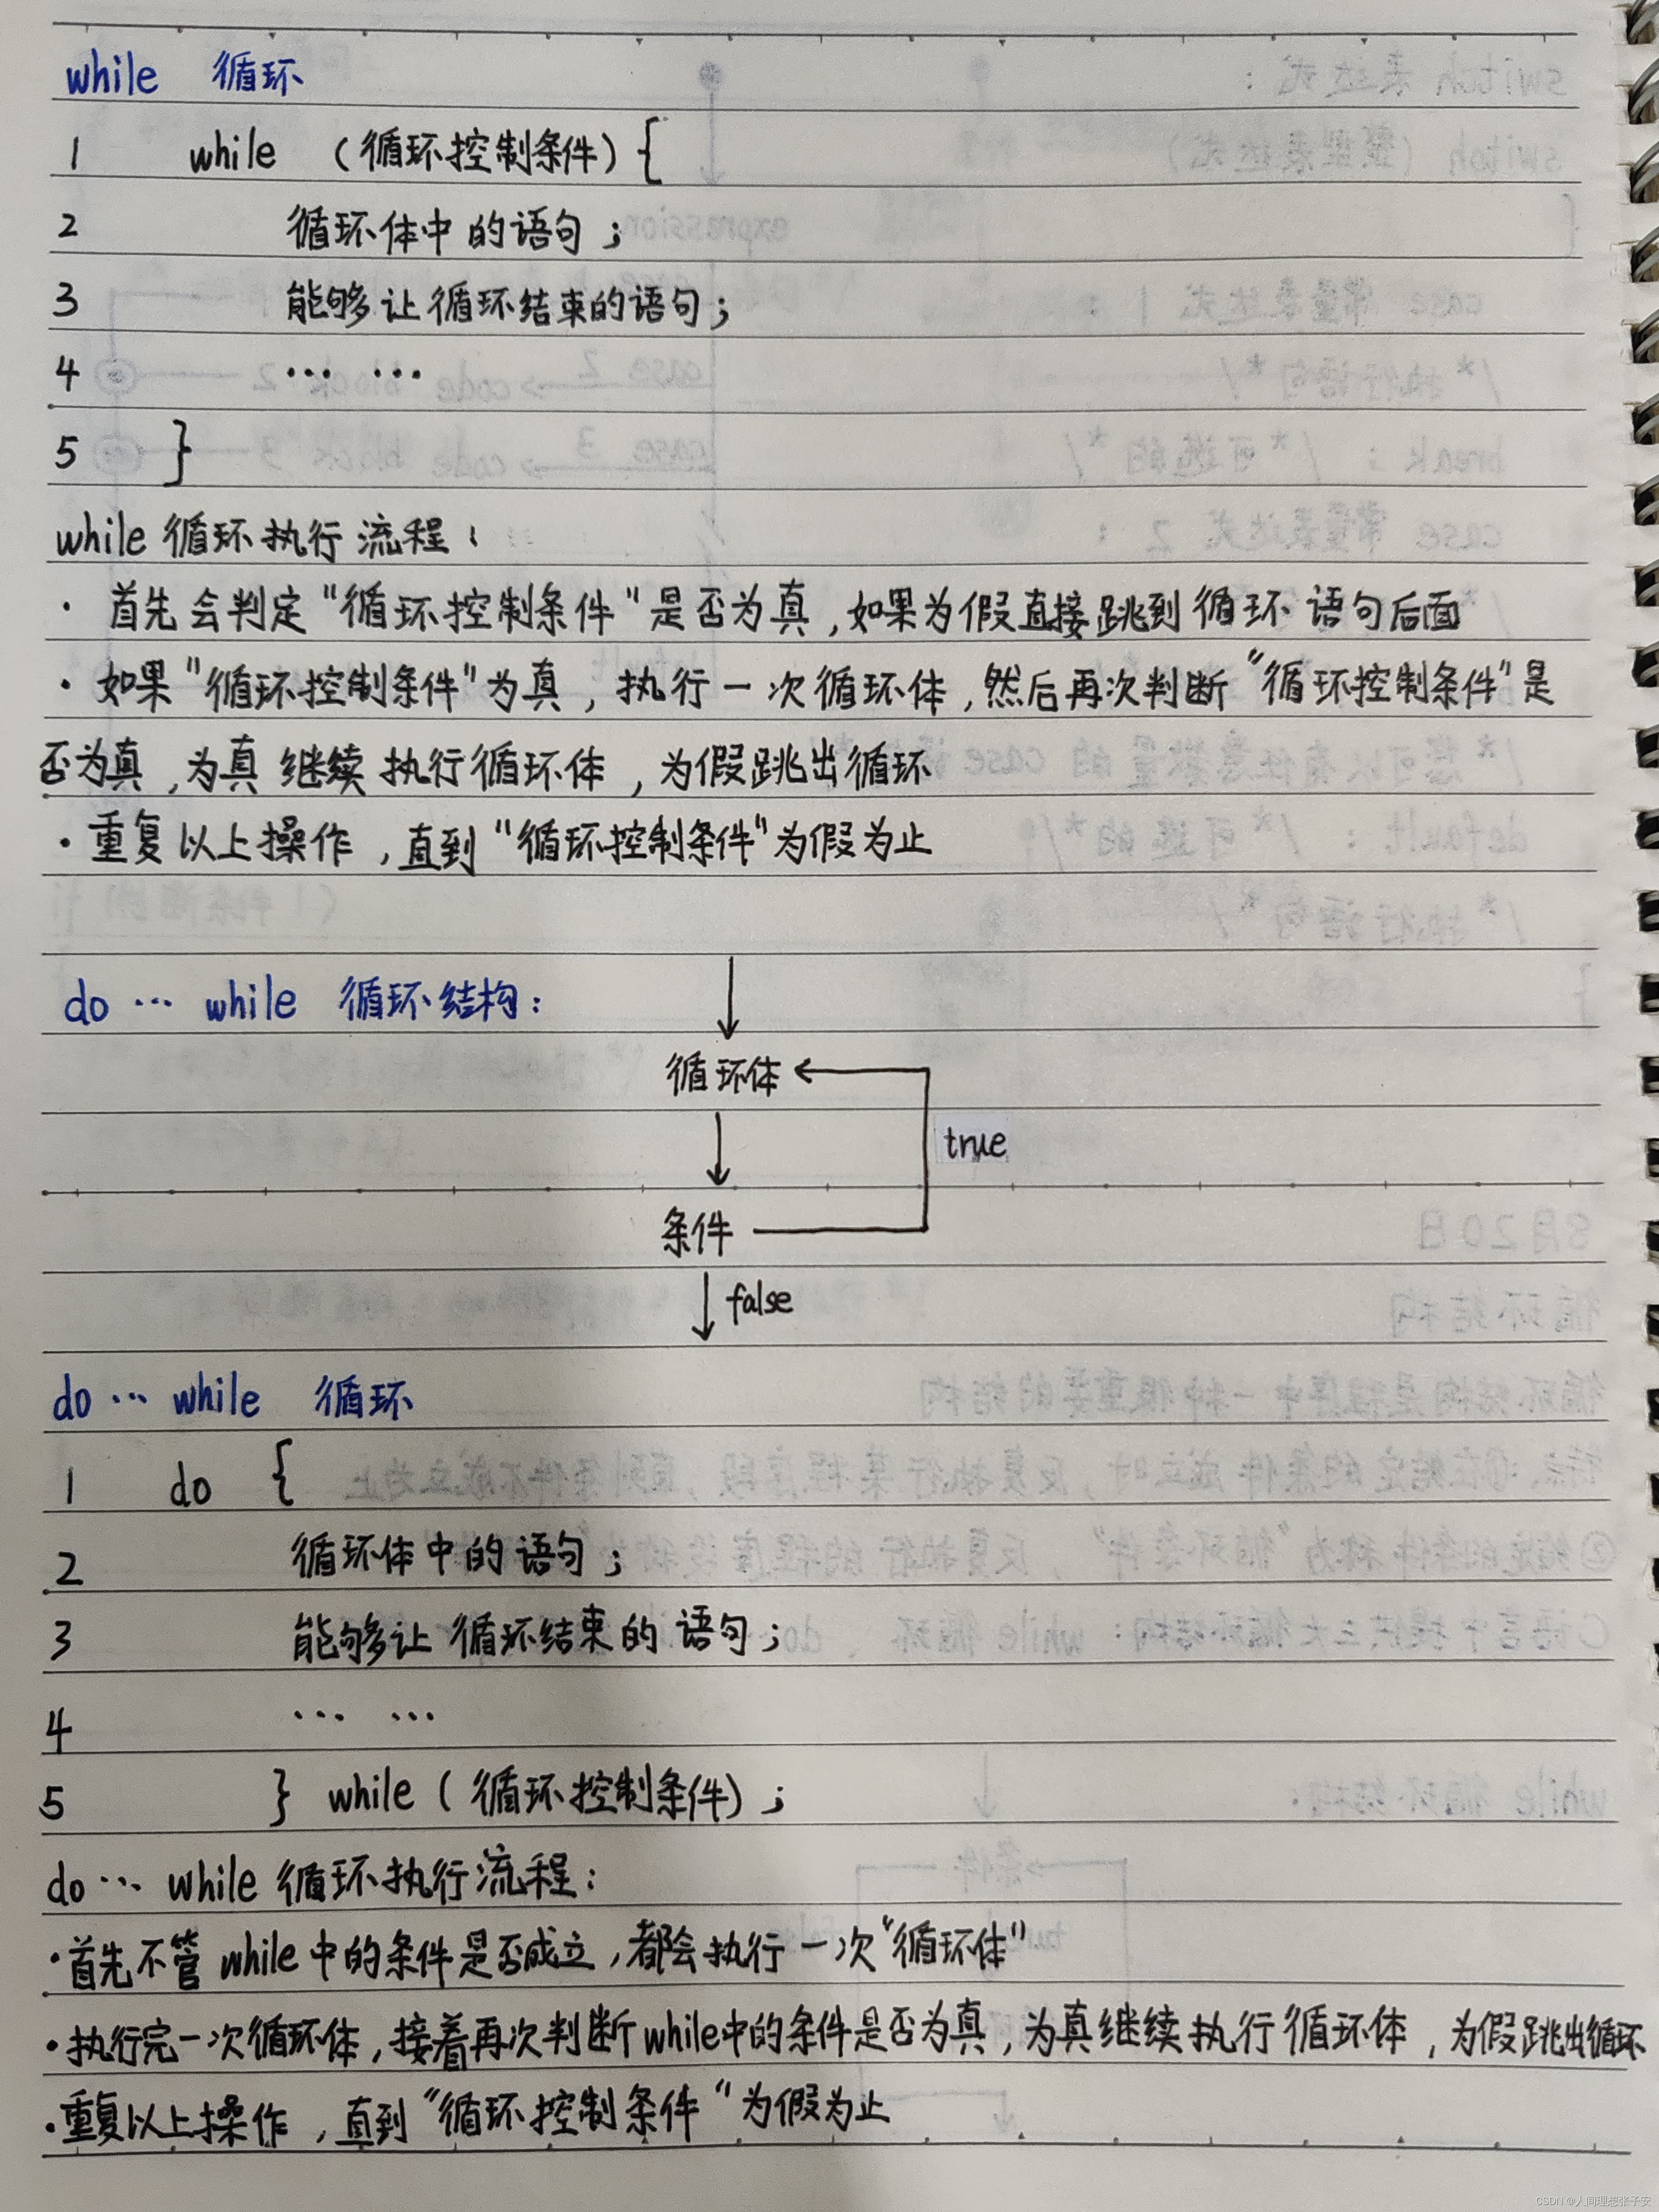 while 循环
1 while (循环控制条件){
2 循环体中的语句;
3 能够让循环结束的语句;
4 … …
5 }
while循环执行流程:
· 首先会判定"循环控制条件"是否为真,如果为假直接跳到循环语句后面
· 如果"循环控制条件"为真,执行一次循环体,然后再次判断"循环控制条件"是
否为真,为真继续执行循环体,为假跳出循环
· 重复以上操作,直到"循环控制条件"为假为止
do … while 循环结构:
循环体
true
条件
false
do … while 循环
1 do {
2 循环体中的语句;
3 能够让循环结束的语句;
4 … …
5 } while (循环控制条件);
do … while 循环执行流程:
·首先不管while中的条件是否成立,都会执行一次"循环体"
·执行完一次循环体,接着再次判断while中的条件是否为真,为真继续执行循环体,为假跳出循环
·重复以上操作,直到"循环控制条件"为假为止
CSDN @人间理想张子安